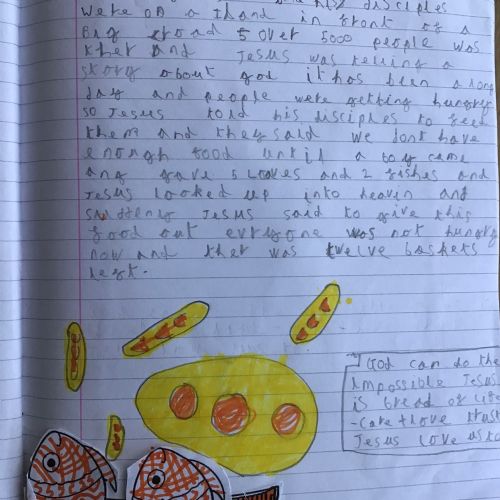 disciples
were on a Iland in front of a
Big croad 5 over 5000 people was
ther and Jesus was telling a
story about god it has been a long
day and people were getting hungry
so Jesus told his disciples to feed
them and they said we dont have
enough food until a boy came
ang gave 5 loaves and 2 fishes and
Jesus looked up into heavin and
suddenly Jesus said to give this
food out evryone was not hungry
now and ther was twelve baskets
left.
God can do the
impossible Jesus
is bread of life
-care + love trust
Jesus love us to